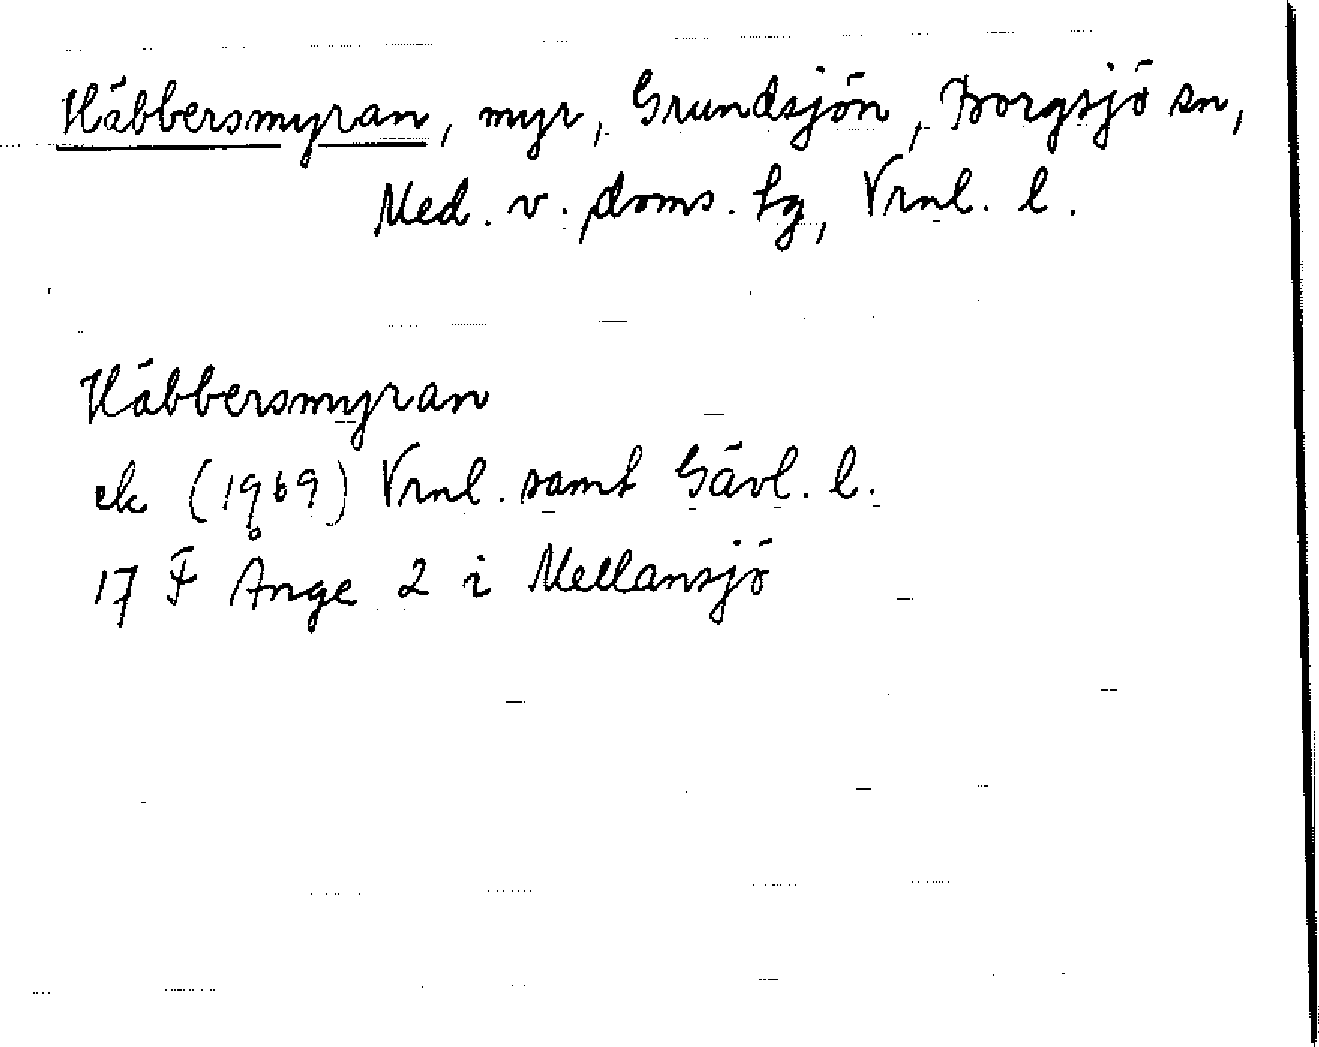 Häbbersmyran, myr, Grundsjön, Borgsjö sn,
Med. v. doms. tg, Vrnl. l.
Häbbersmyran
ek (1969) Vrnl. samt Gävl. l.
17 F Ånge 2 i Mellansjö